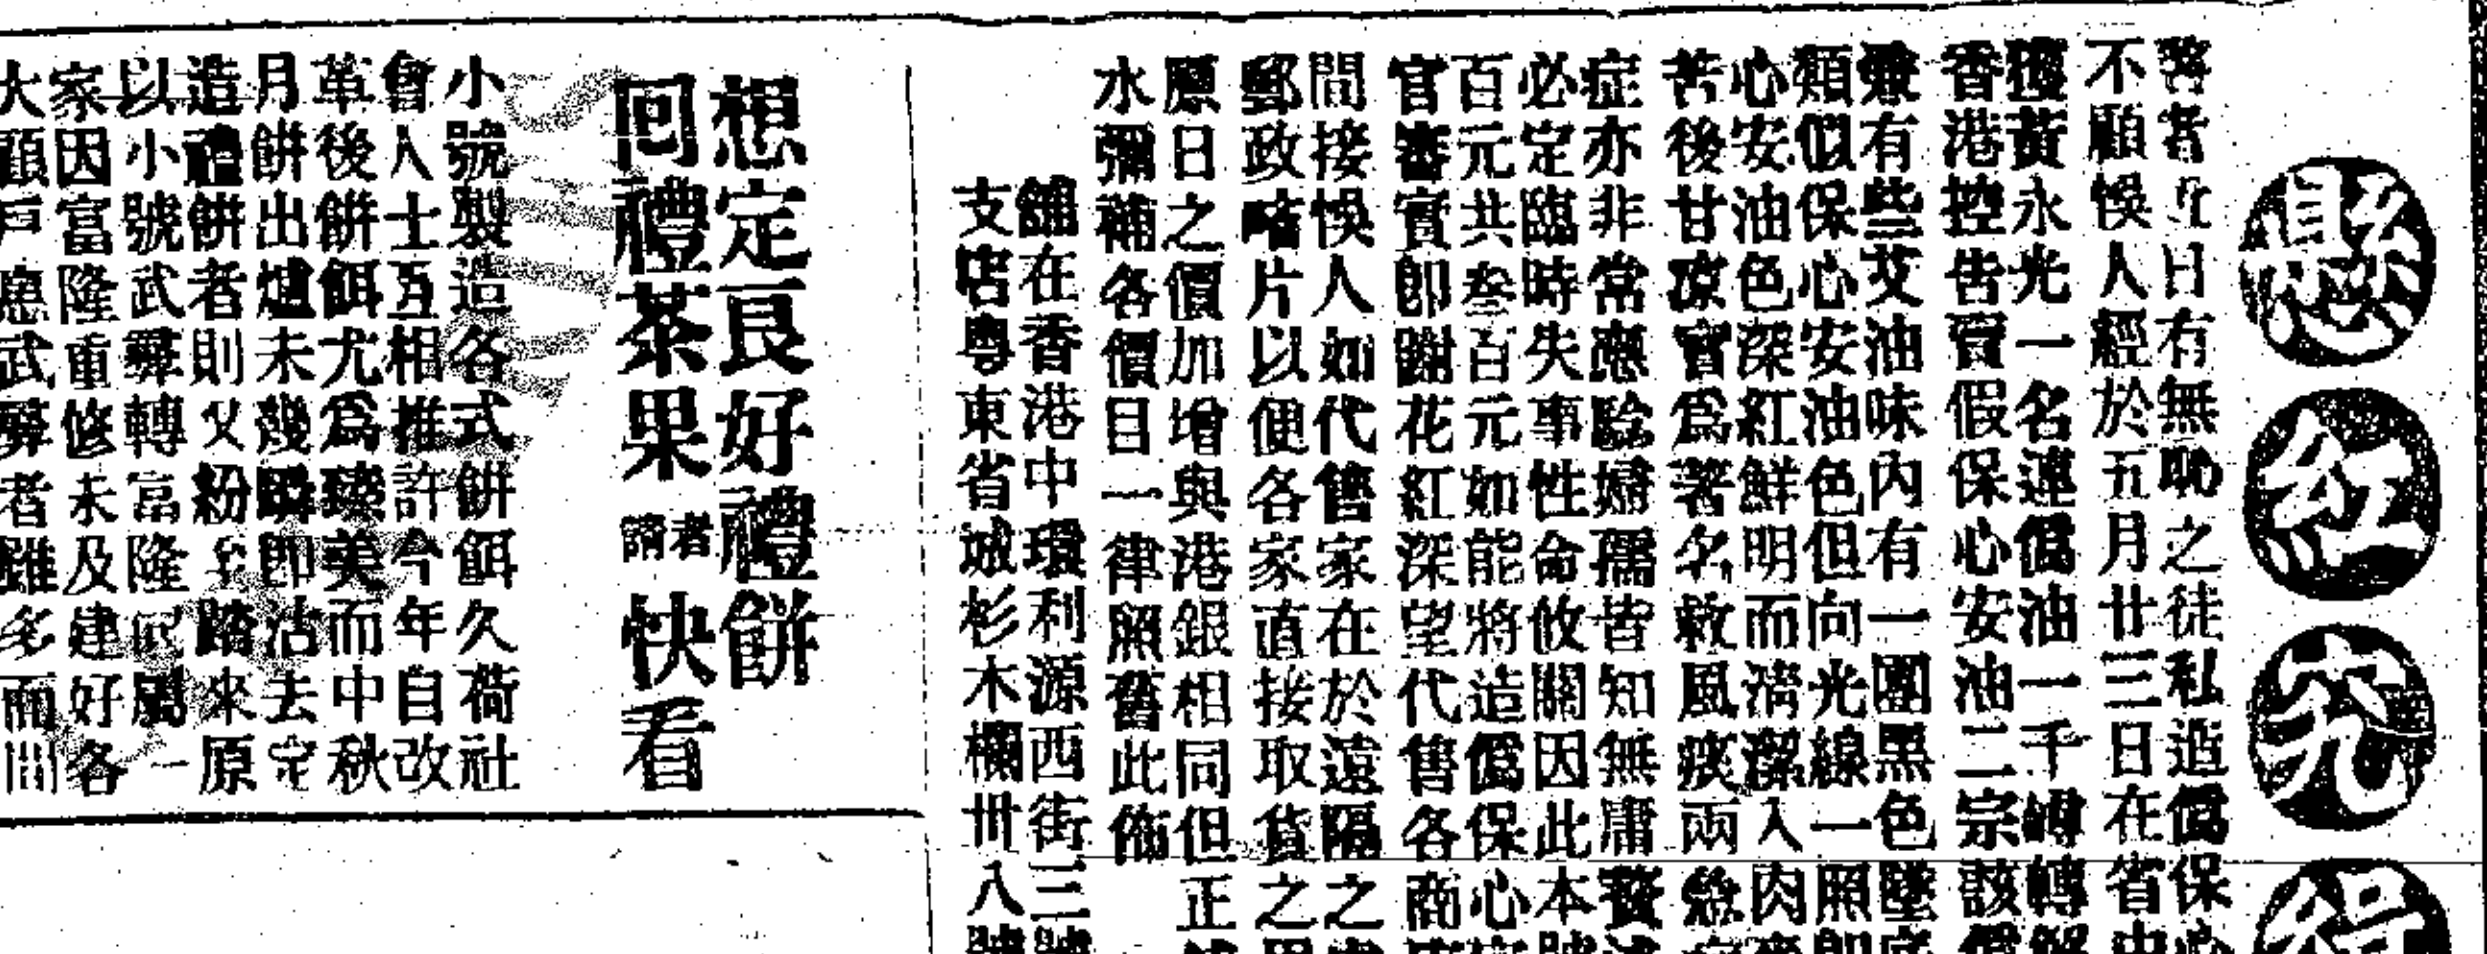 懸
紅
究
啓者近日有無恥之徒私造僞保心
不顧悞人經於五月廿三日在省
獲黃永光一名連僞油一千罇轉解
香港控告賣假保心安油二宗該
兼有些艾油味內有一團黑色墜底
類似保心安油色但向光線一照卽
心安油色深紅鮮明而淸潔入肉
苦後甘凉實爲著名救風痰兩
症亦非常應驗婦孺皆知無庸贅述
必定臨時失事性命攸關因此本號
百元共叁百元如能將造僞保心
官審實卽謝花紅深望代售各商
間接悞人如代售家在於遠隔之
郵政略片以便各家直接取貨之
原日之價加增與港銀相同但正
水彌補各價目一律照舊此佈
舖在香港中環利源西街三號
支店粵東省城杉木欄卅八號
想定良好禮餅
回禮茶果 請者快看
小號製造各式餅餌久荷社
會人士互相推許今年自改
革後餅餌尤爲臻美而中秋
月餅出爐未幾瞬卽沽去定
造禮餅者則又紛至踏來原
以小號武彞轉富隆記屬一
家因富隆重修未及建好各
大顧戶意武彞者雖多而問